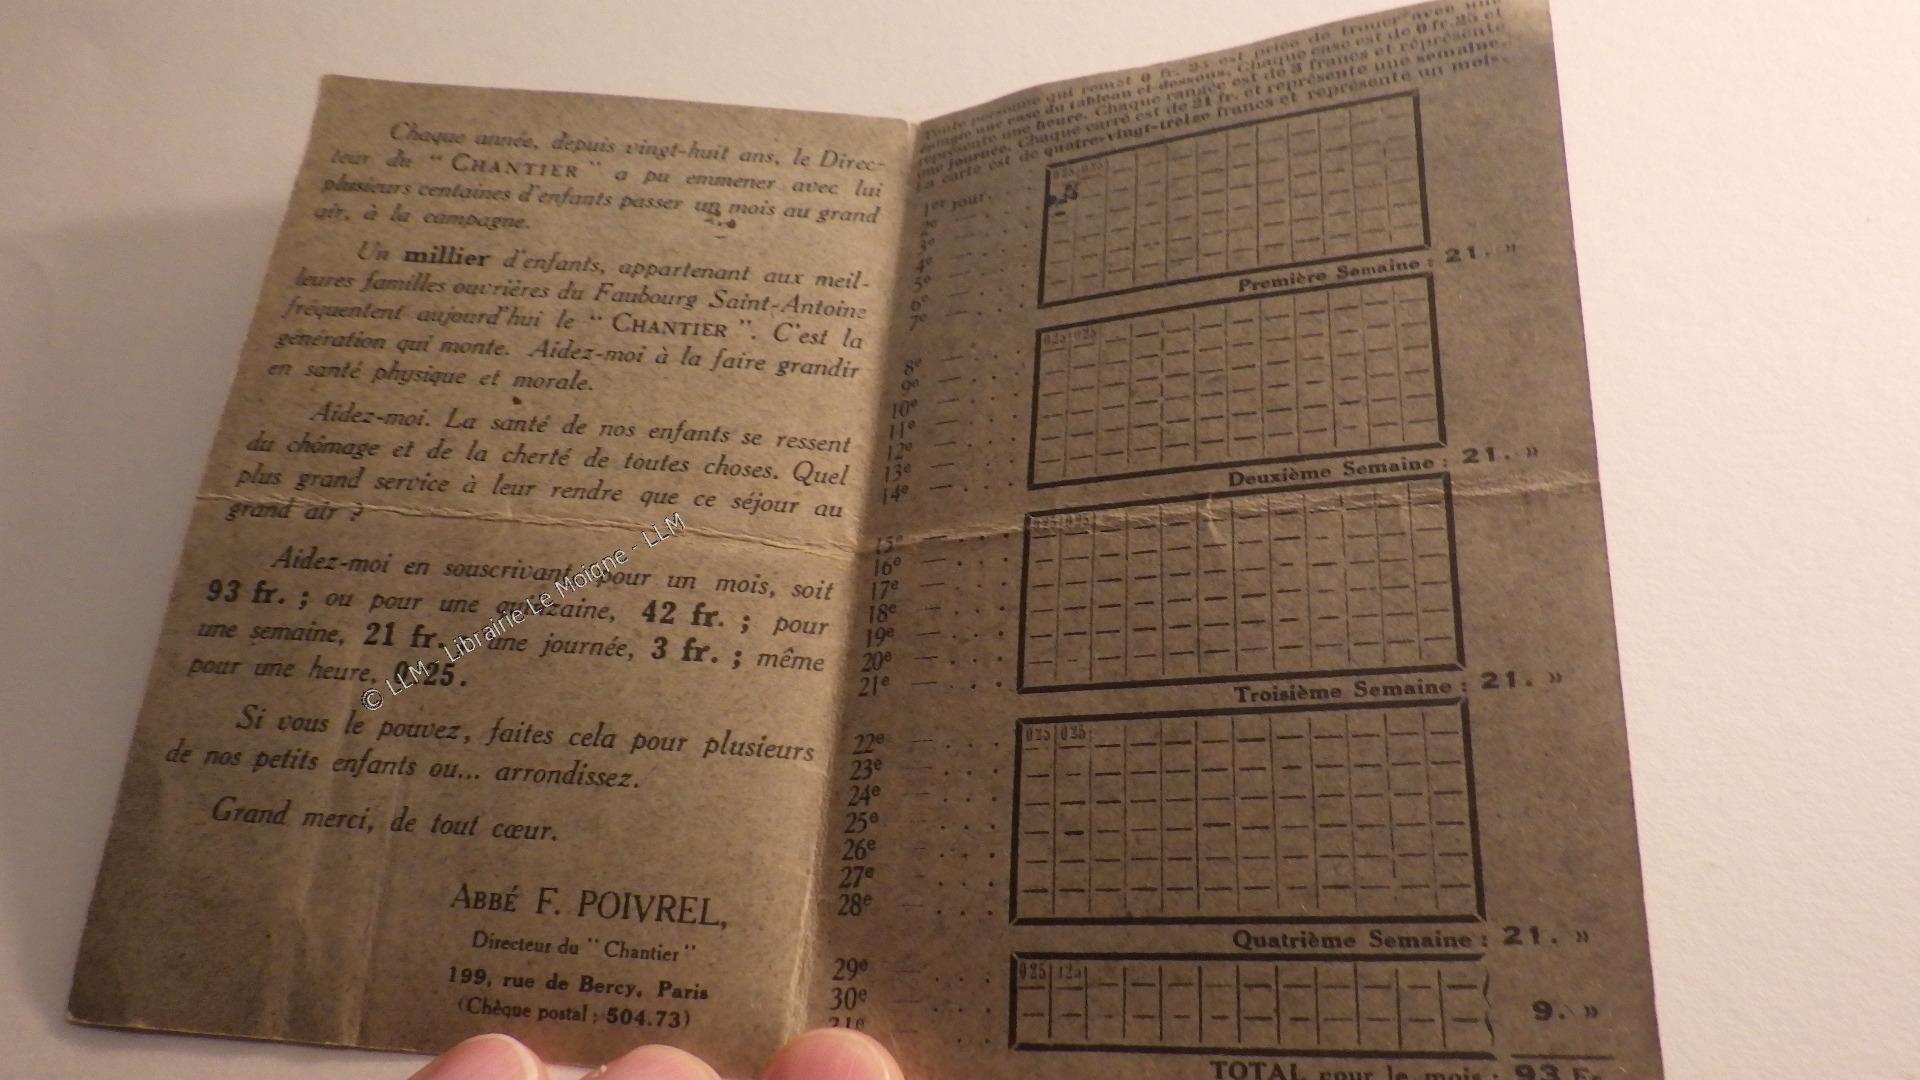 Chaque année, depuis vingt-huit ans, le Direc-
teur du “ CHANTIER ” a pu emmener avec lui
plusieurs centaines d'enfants passer un mois au grand
air, à la campagne.
Un millier d'enfants, appartenant aux meil-
leures familles ouvrières du Faubourg Saint-Antoine
fréquentent aujourd'hui le “ CHANTIER ”. C'est la
génération qui monte. Aidez-moi à la faire grandir
en santé physique et morale.
Aidez-moi. La santé de nos enfants se ressent
du chômage et de la cherté de toutes choses. Quel
plus grand service à leur rendre que ce séjour au
grand air ?
Aidez-moi en souscrivant pour un mois, soit
93 fr. ; ou pour une quinzaine, 42 fr. ; pour
une semaine, 21 fr. ; une journée, 3 fr. ; même
pour une heure, 0.25.
Si vous le pouvez, faites cela pour plusieurs
de nos petits enfants ou... arrondissez.
Grand merci, de tout cœur.
ABBÉ F. POIVREL,
Directeur du “ Chantier ”
199, rue de Bercy, Paris
(Chèque postal : 504.73)
© LLM - Librairie Le Moigne - LLM
Toute personne qui remet 0 fr. 25 est priée de trouer avec une
épingle une case du tableau ci-dessous. Chaque case est de 0 fr. 25 et
représente une heure. Chaque rangée est de 3 francs et représente
une journée. Chaque carré est de 21 fr. et représente une semaine.
La carte est de quatre-vingt-treize francs et représente un mois.
1er jour.
025 025
2e
3e
4e
5e
6e
7e
Première Semaine : 21. »
025 025
8e
9e
10e
11e
12e
13e
14e
Deuxième Semaine : 21. »
025 025
15e
16e
17e
18e
19e
20e
21e
Troisième Semaine : 21. »
025 025
22e
23e
24e
25e
26e
27e
28e
Quatrième Semaine : 21. »
025
29e
30e
31e
9. »
TOTAL pour le mois : 93 Fr